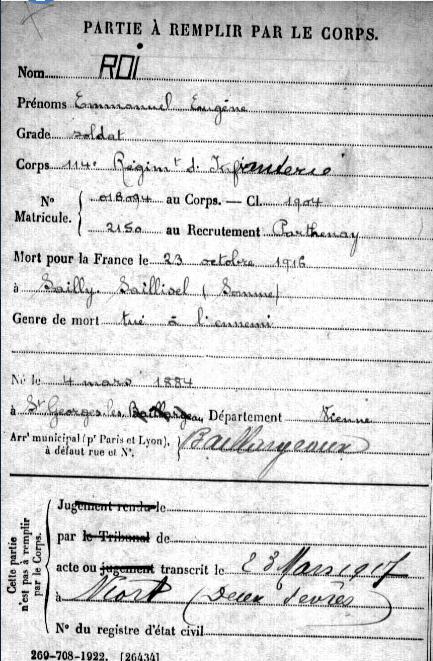 PARTIE À REMPLIR PAR LE CORPS.
Nom ROI
Prénoms Emmanuel Eugène
Grade soldat
Corps 114e Régimt d'Infanterie
No Matricule. { 018094 au Corps. — Cl. 1904
2150 au Recrutement Parthenay
Mort pour la France le 23 octobre 1916
à Sailly-Saillisel (Somme)
Genre de mort tué à l'ennemi
Né le 4 mars 1884
à St Georges les Baillargeau Département Vienne
Arrt municipal (pr Paris et Lyon), à défaut rue et No. } Baillargeaux
Cette partie n'est pas à remplir par le Corps.
Jugement rendu le
par le Tribunal de
acte ou jugement transcrit le 23 Mars 1917
à Niort (Deux Sèvres)
No du registre d'état civil
269-708-1922. [26434]